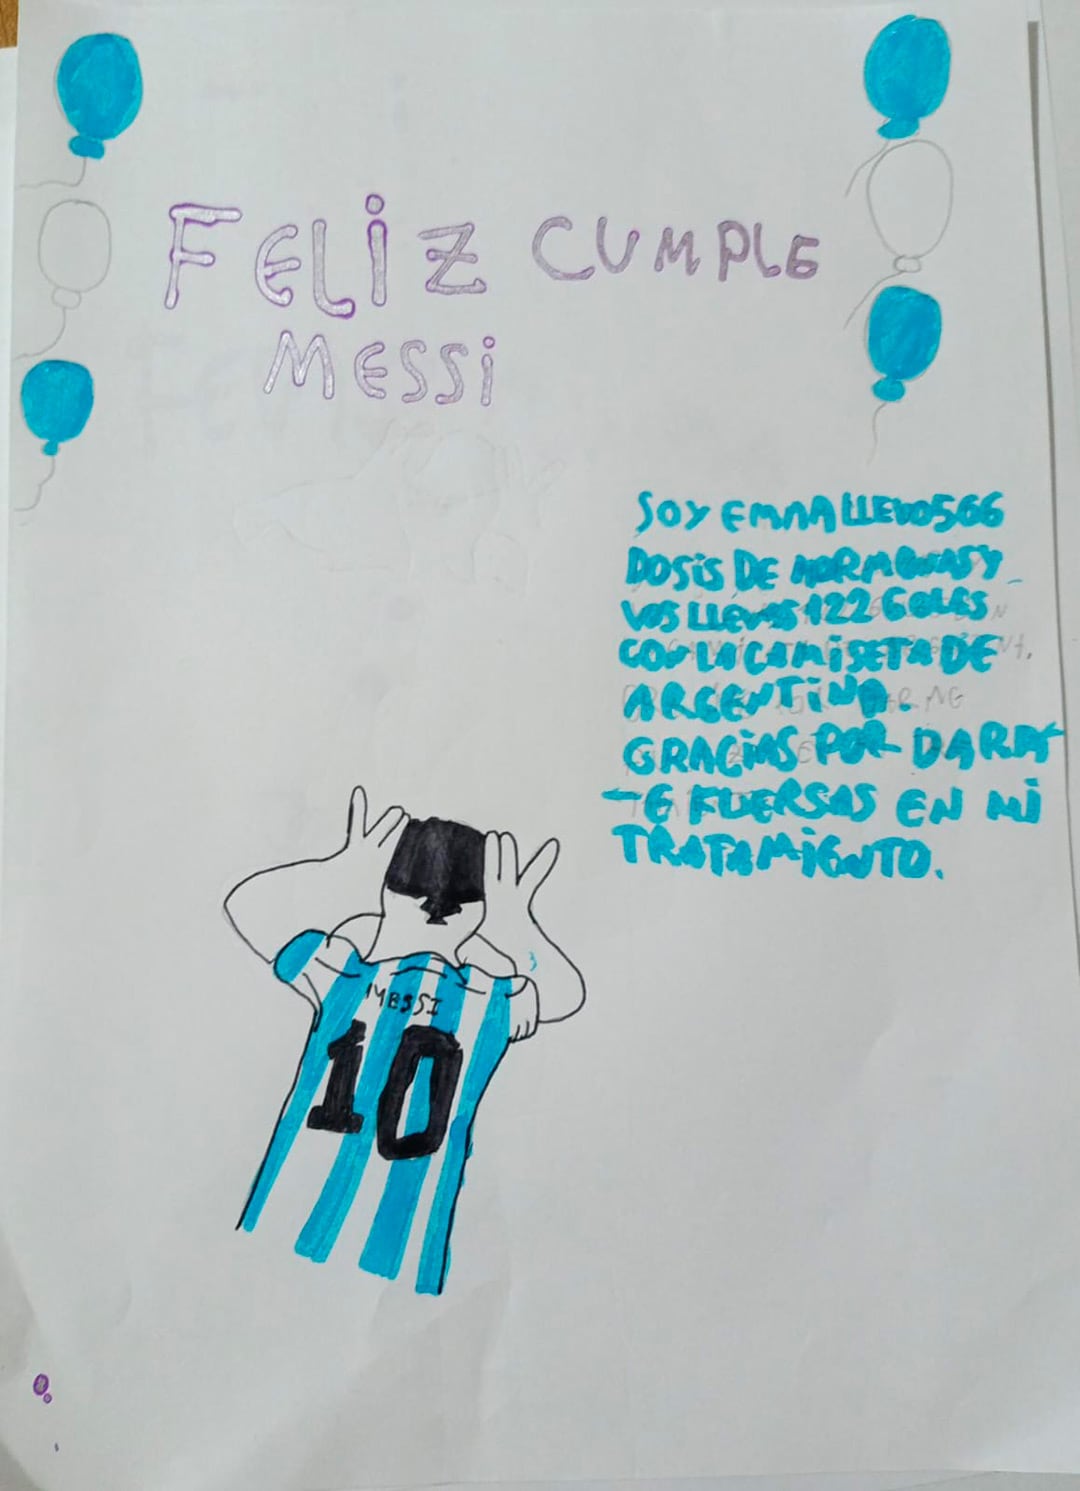 FELIZ CUMPLE
MESSI
SOY EMMA LLEVO 566
DOSIS DE HORMONAS Y
VOS LLEVAS 122 GOLES
CON LA CAMISETA DE
ARGENTINA.
GRACIAS POR DARM
-E FUERSAS EN MI
TRATAMIENTO.
MESSI
10